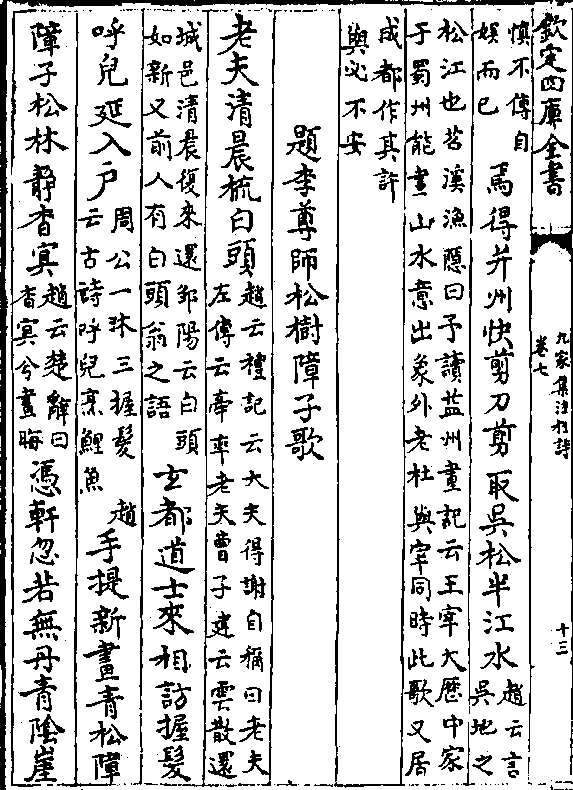 欽定四庫全書
九家集注杜詩
卷七
十三
慎不傳自
娛而已
焉得并州快剪刀剪取吳松半江水
趙云言
吳地之
松江也苕溪漁隱曰予讀益州畫記云王宰大歷中家
于蜀州能畫山水意出象外老杜與宰同時此歌又居
成都作其許
與必不妄
題李尊師松樹障子歌
老夫清晨梳白頭
趙云禮記云大夫得謝自稱曰老夫
左傳云牽率老夫曹子建云雲散還
城邑清晨復來還鄒陽云白頭
如新又前人有白頭翁之語
玄都道士來相訪握髮
呼兒延入戶
周公一沐三握髮趙
云古詩呼兒烹鯉魚
手提新畫青松障
障子松林靜杳冥
趙云楚辭曰
杳冥兮晝晦
憑軒忽若無丹青陰崖